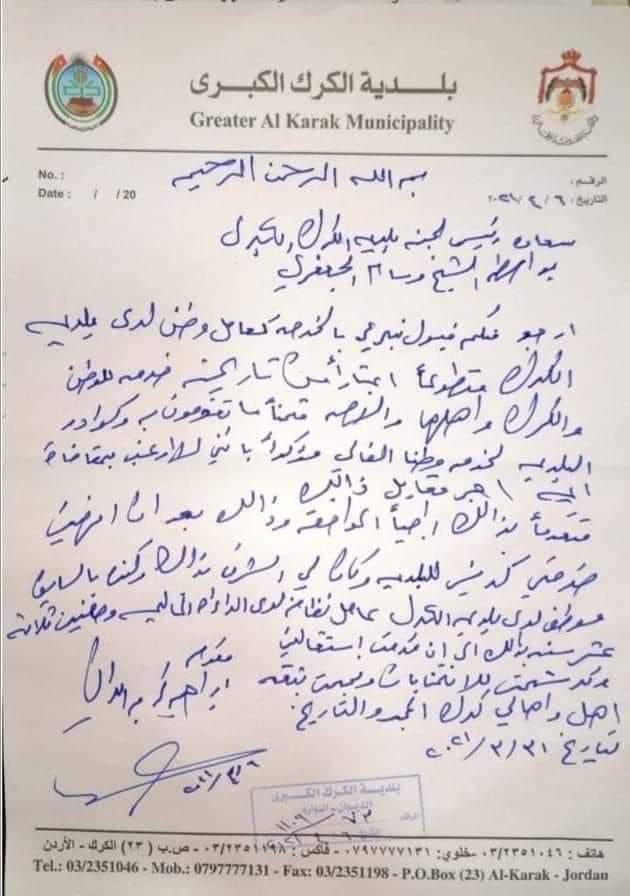 بلدية الكرك الكبرى
Greater Al Karak Municipality
No. :
Date : / / 20
الرقم :
التاريخ :
بسم الله الرحمن الرحيم
سعادة رئيس لجنة بلدية الكرك الكبرى
بواسطة الشيخ وسام الجعفري
ارجو منكم قبول تبرعي بالخدمة كعامل وطن لدى بلدية
الكرك متطوعاً اعتباراً من تاريخه خدمة للوطن
والكرك واهلها مثمناً ما تقومون به وكوادر
البلدية لخدمة وطننا الغالي مؤكداً بانني لا ارغب بتقاضي
اي اجر مقابل ذالك
متقدماً بذالك راجياً الموافقة وذالك بعد ان انهيت
خدمتي كرئيس للبلدية وكان لي الشرف بذالك وكنت بالسابق
موظف لدى بلدية الكرك عامل نظافة لدى الدائرة الماليه وخدمت ثلاثة
عشر سنة بذالك الى ان قدمت إستقالتي
وترشحت للانتخابات وبثقة
اهل واهالي كرك المجد والتاريخ
بتاريخ
مقدمه
ابراهيم
بلدية الكرك الكبرى
الديوان - الوارد
الرقم
هاتف : ٠٣/٢٣٥١٠٤٦ -خلوي: ٠٧٩٧٧٧٧١٣١ - فاكس : ٠٣/٢٣٥١١٩٨ - ص.ب ( ٢٣) الكرك - الأردن
Tel.: 03/2351046 - Mob.: 0797777131 - Fax: 03/2351198 - P.O.Box (23) Al-Karak - Jordan